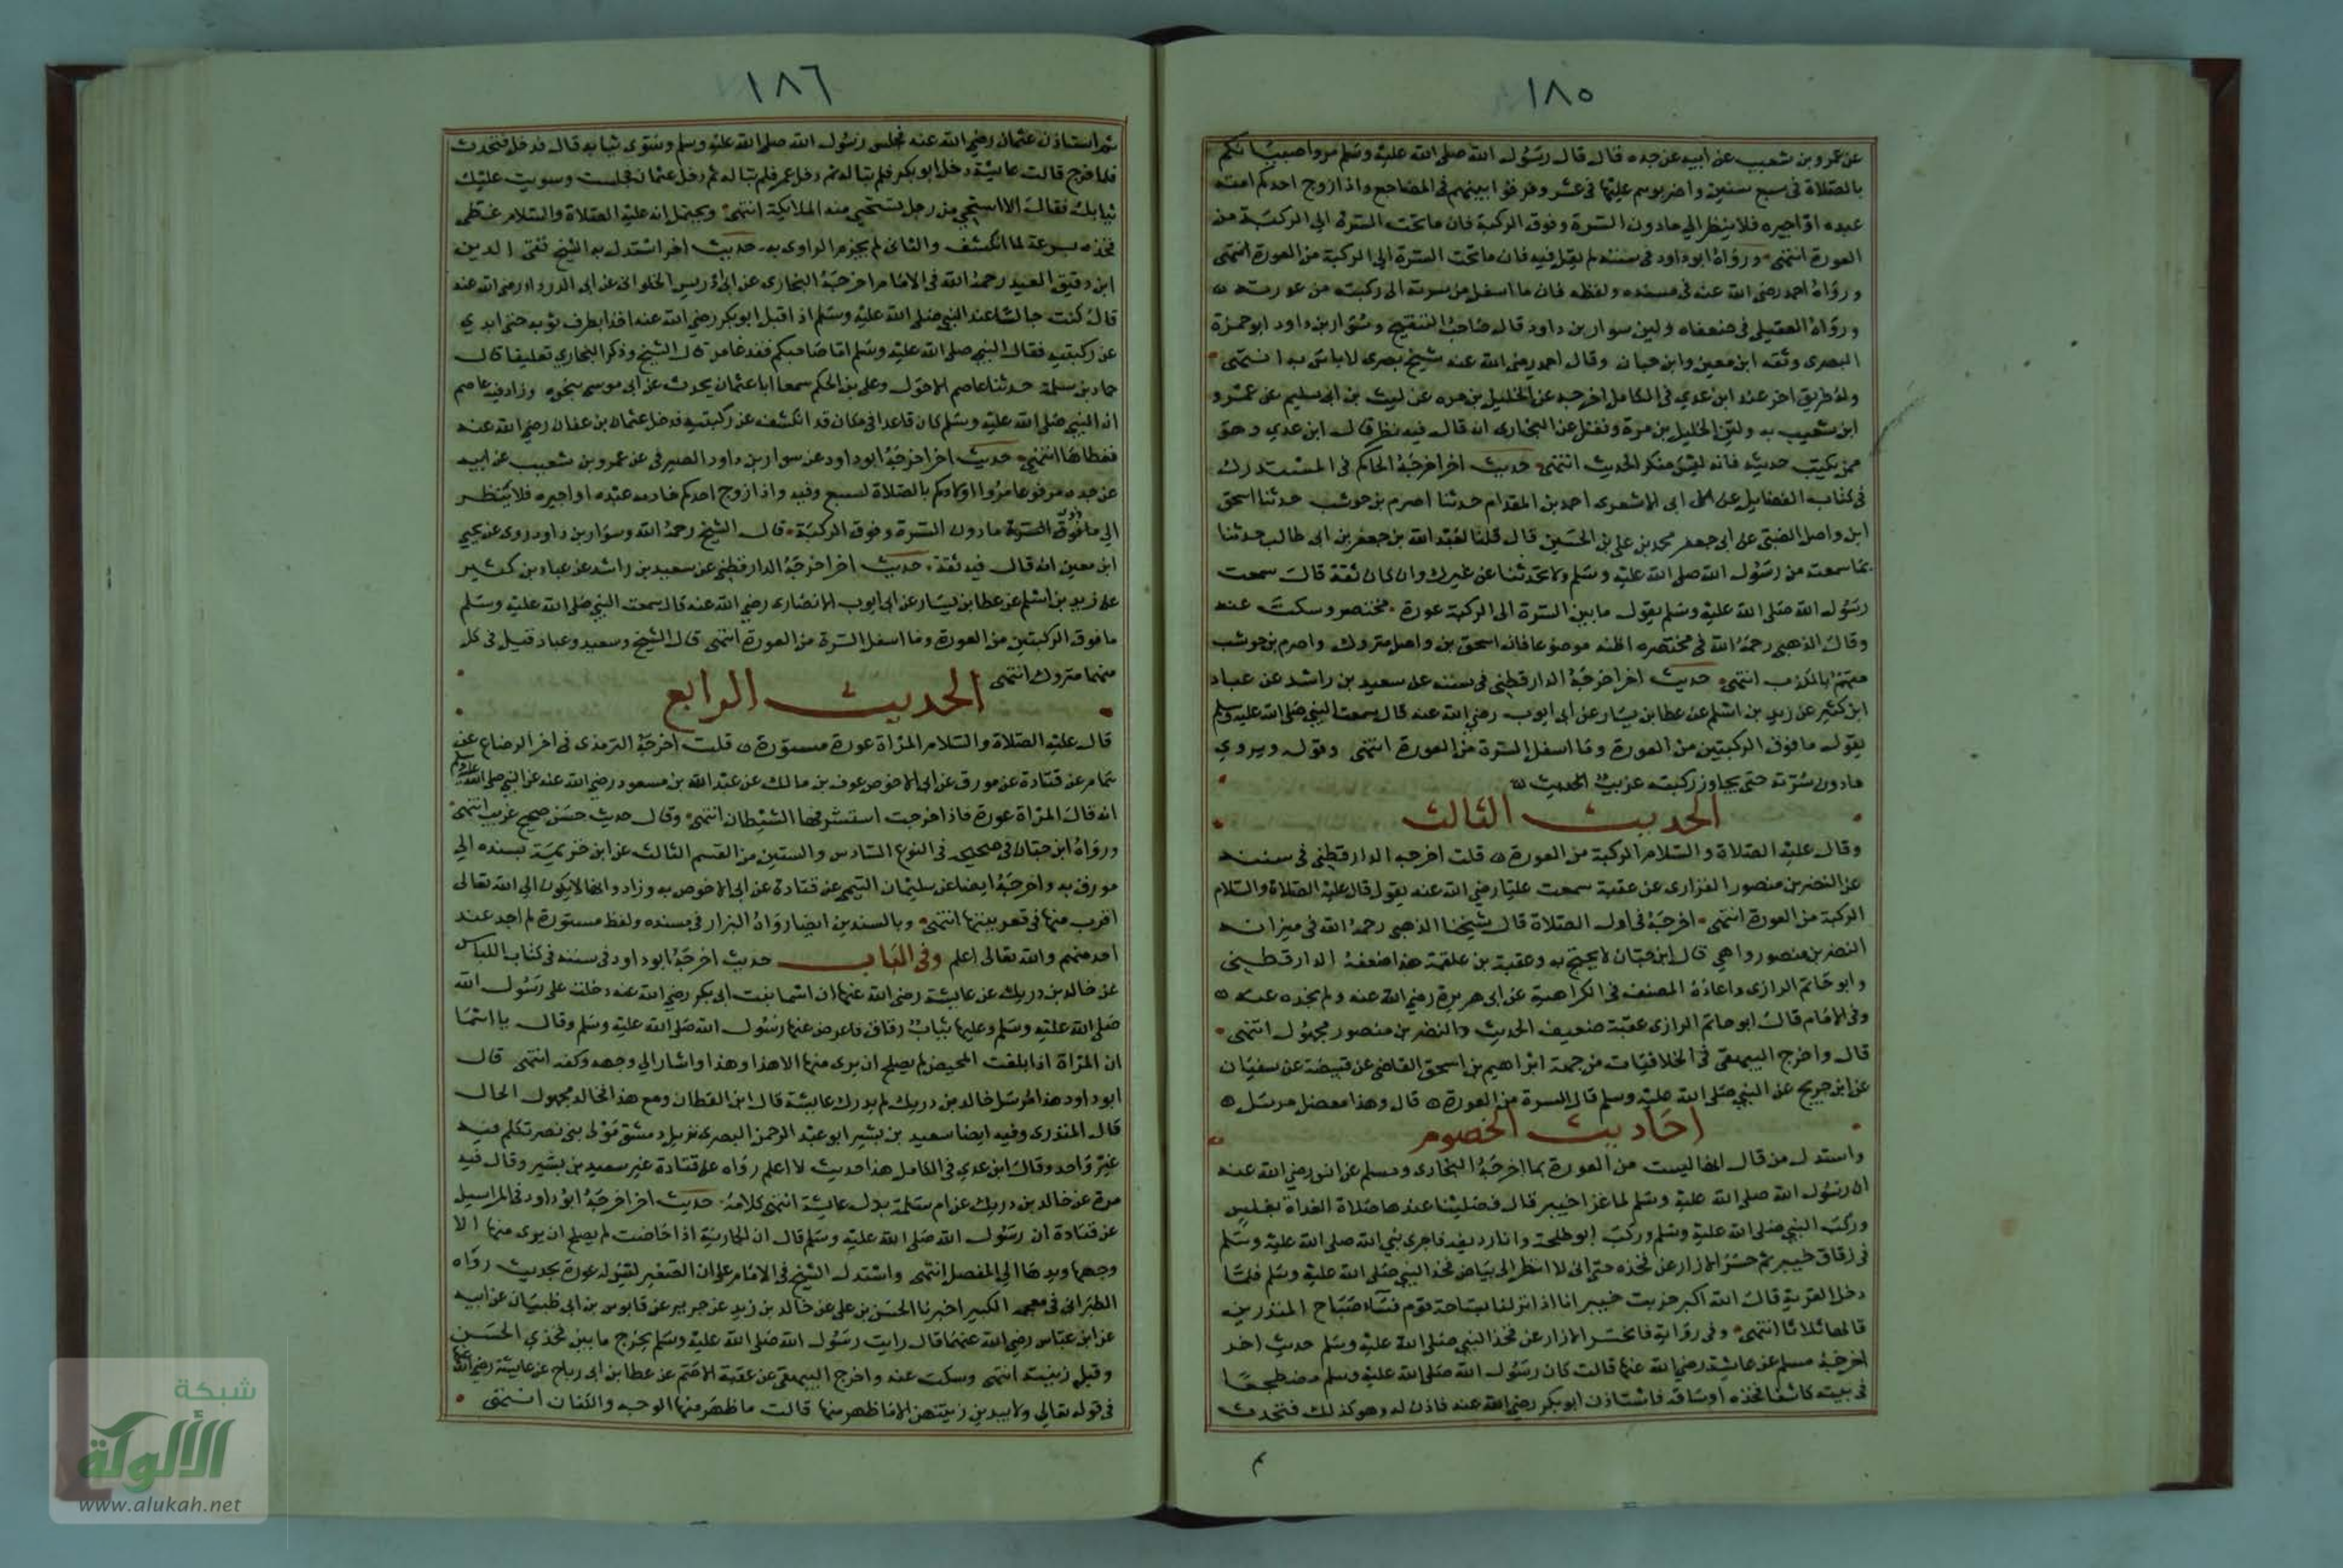 ١٨٥
عن عمرو بن شعيب عن ابيه عن جده قال قال رسول الله صلى الله عليه وسلم مروا صبيانكم
بالصلاة في سبع سنين واضربوهم عليها في عشر وفرقوا بينهم في المضاجع واذا زوج احدكم امته
عبده او اجيره فلا ينظر الي ما دون السرة وفوق الركبة فان ما تحت السرة الي الركبة من
العورة انتهى ورواه ابو داود في سننه لم يقل فيه فان ما تحت السرة الي الركبة من العورة انتهى
ورواه احمد رضي الله عنه في مسنده ولفظه فان ما اسفل من سرته الى ركبته من عورته
ورواه العقيلي في ضعفاه ولين سوار بن داود قال صاحب التنقيح وسوار بن داود ابو حمزة
البصرى وثقه ابن معين وابن حبان وقال احمد رضي الله عنه شيخ بصرى لا باس به انتهى
وله طريق اخر عند ابن عدي في الكامل اخرجه عن الخليل بن مره عن ليث بن ابي سليم عن عمرو
ابن شعيب به ولين الخليل بن مرة ونقل عن البخارى انه قال فيه نظر قال ابن عدي وهو
ممن يكتب حديثه فانه ليس منكر الحديث انتهى حديث اخر اخرجه الحاكم في المستدرك
في كتاب الفضايل عن ابي الاشعرى احمد بن المقدام حدثنا اصرم بن حوشب حدثنا اسحق
ابن واصل الضبي عن ابي جعفر محمد بن علي بن الحسين قال قلنا لعبد الله بن جعفر بن ابي طالب حدثنا
بما سمعت من رسول الله صلى الله عليه وسلم ولا تحدثنا عن غيرك وان كان ثقة قال سمعت
رسول الله صلى الله عليه وسلم يقول ما بين السرة الى الركبة عورة مختصر وسكت عنه
وقال الذهبي رحمه الله في مختصره اظنه موضوعا فان اسحق بن واصل متروك واصرم بن حوشب
متهم بالكذب انتهى حديث اخر اخرجه الدارقطني في سننه عن سعيد بن راشد عن عباد
ابن كثير عن زيد بن اسلم عن عطا بن يسار عن ابي ايوب رضي الله عنه قال سمعت النبي صلى الله عليه وسلم
يقول ما فوق الركبتين من العورة وما اسفل السرة من العورة انتهى وقوله ويروي
ما دون سرته حتى يجاوز ركبته غريب الحديث
الحديث الثالث
وقال عليه الصلاة والسلام الركبة من العورة قلت اخرجه الدارقطني في سننه
عن النضر بن منصور الفزارى عن عقبة سمعت عليا رضي الله عنه يقول قال عليه الصلاة والسلام
الركبة من العورة انتهى اخرجه في اول الصلاة قال شيخنا الذهبي رحمه الله في ميزانه
النضر بن منصور واهي قال ابن حبان لا يحتج به وعقبة بن علقمة هذا ضعفه الدارقطني
وابو حاتم الرازى واعاده المصنف في الكراهية عن ابي هريرة رضي الله عنه ولم نجده عنه
وفي الامام قال ابو حاتم الرازى عقبة ضعيف الحديث والنضر بن منصور مجهول انتهى
قال واخرج البيهقي في الخلافيات من جهة ابراهيم بن اسحق القاضي عن قبيصة عن سفيان
عن ابن جريج عن النبي صلى الله عليه وسلم قال السرة من العورة قال وهذا معضل مرسل
احاديث الخصوم
واستدل من قال انها ليست من العورة بما اخرجه البخارى ومسلم عن انس رضي الله عنه
ان رسول الله صلى الله عليه وسلم لما غزا خيبر قال فصلينا عندها صلاة الغداة بغلس
وركب النبي صلى الله عليه وسلم وركب ابو طلحة وانا رديفه فاجرى نبي الله صلى الله عليه وسلم
في زقاق خيبر ثم حسر الازار عن فخذه حتى اني لا انظر الى بياض فخذ النبي صلى الله عليه وسلم فلما
دخل القرية قال الله اكبر خربت خيبر انا اذا نزلنا بساحة قوم فساء صباح المنذرين
قالها ثلاثا انتهى وفي رواية فانحسر الازار عن فخذ النبي صلى الله عليه وسلم حديث اخر
اخرجه مسلم عن عائشة رضي الله عنها قالت كان رسول الله صلى الله عليه وسلم مضطجعا
في بيته كاشفا فخذه او ساقه فاستاذن ابو بكر رضي الله عنه فاذن له وهو كذلك فتحدث
١٨٦
ثم استاذن عثمان رضي الله عنه فجلس رسول الله صلى الله عليه وسلم وسوى ثيابه قال فدخل فتحدث
فلما خرج قالت عايشة دخل ابو بكر فلم تباله ثم دخل عمر فلم تباله ثم دخل عثمان فجلست وسويت عليك
ثيابك فقال الا استحي من رجل تستحيي منه الملايكة انتهى ويحتمل انه عليه الصلاة والسلام غطى
فخذه بسرعة لما انكشف والثاني لم يجزم الراوى به حديث اخر استدل به الشيخ تقي الدين
ابن دقيق العيد رحمه الله في الامام اخرجه البخارى عن ابي ادريس الخلواني عن ابي الدرداء رضي الله عنه
قال كنت جالسا عند النبي صلى الله عليه وسلم اذ اقبل ابو بكر رضي الله عنه اخذا بطرف ثوبه حتى ابدي
عن ركبتيه فقال النبي صلى الله عليه وسلم اما صاحبكم فقد غامر قال الشيخ وذكر البخاري تعليقا قال
حماد بن سلمة حدثنا عاصم الاحول وعلي بن الحكم سمعا ابا عثمان يحدث عن ابي موسى بنحوه وزاد فيه عاصم
ان النبي صلى الله عليه وسلم كان قاعدا في مكان قد انكشف عن ركبتيه فدخل عثمان بن عفان رضي الله عنه
فغطاها انتهى حديث اخر اخرجه ابو داود عن سوار بن داود الصيرفي عن عمرو بن شعيب عن ابيه
عن جده مرفوعا مروا اولادكم بالصلاة لسبع وفيه واذا زوج احدكم خادمه عبده او اجيره فلا ينظر
الي ما فوق السرة ما دون السرة وفوق الركبة قال الشيخ رحمه الله وسوار بن داود روى عن يحيي
ابن معين انه قال فيه ثقة حديث اخر اخرجه الدارقطني عن سعيد بن راشد عن عباد بن كثير
عن زيد بن اسلم عن عطا بن يسار عن ابي ايوب الانصارى رضي الله عنه قال سمعت النبي صلى الله عليه وسلم
ما فوق الركبتين من العورة وما اسفل السرة من العورة انتهى قال الشيخ وسعيد وعباد قيل في كل
منهما متروك انتهى
الحديث الرابع
قال عليه الصلاة والسلام المراة عورة مستورة قلت اخرجه الترمذى في اخر الرضاع عن
همام عن قتادة عن مورق عن ابي الاحوص عوف بن مالك عن عبد الله بن مسعود رضي الله عنه عن النبي صلى الله عليه وسلم
انه قال المراة عورة فاذا خرجت استشرفها الشيطان انتهى وقال حديث حسن صحيح غريب انتهى
ورواه ابن حبان في صحيحه في النوع السادس والستين من القسم الثالث عن ابن خزيمة بسنده الي
مورق به واخرجه ايضا عن سليمان التيمي عن قتادة عن ابي الاحوص به وزاد وانها لا يكون الى الله تعالى
اقرب منها في قعر بيتها انتهى وبالسندين ايضا رواه البزار في مسنده ولفظ مستورة لم اجد عند
احد منهم والله تعالى اعلم وفي الباب حديث اخرجه ابو داود في سننه في كتاب اللباس
عن خالد بن دريك عن عايشة رضي الله عنها ان اسما بنت ابي بكر رضي الله عنه دخلت على رسول الله
صلى الله عليه وسلم وعليها ثياب رقاق فاعرض عنها رسول الله صلى الله عليه وسلم وقال يا اسما
ان المراة اذا بلغت المحيض لم يصلح ان يرى منها الا هذا وهذا واشار الي وجهه وكفه انتهى قال
ابو داود هذا مرسل خالد بن دريك لم يدرك عايشة قال ابن القطان ومع هذا فخالد مجهول الحال
قال المنذرى وفيه ايضا سعيد بن بشير ابو عبد الرحمن البصرى نزيل دمشق مولى بني نصر تكلم فيه
غير واحد وقال ابن عدي في الكامل هذا حديث لا اعلم رواه عن قتادة غير سعيد بن بشير وقال فيه
مرة عن خالد بن دريك عن ام سلمة بدل عايشة انتهى كلامه حديث اخر اخرجه ابو داود في المراسيل
عن قتادة ان رسول الله صلى الله عليه وسلم قال ان الجارية اذا حاضت لم يصلح ان يرى منها الا
وجهها ويدها الي المفصل انتهى واستدل الشيخ في الامام على ان الصغير لقبوله عورة بحديث رواه
الطبراني في معجمه الكبير اخبرنا الحسن بن علي عن خالد بن زيد عن جرير عن قابوس بن ابي ظبيان عن ابيه
عن ابن عباس رضي الله عنهما قال رايت رسول الله صلى الله عليه وسلم يفرج ما بين فخذي الحسن
وقبل زبيبته انتهى وسكت عنه واخرج البيهقي عن عقبة الاصم عن عطا بن ابي رباح عن عايشة رضي الله عنها
في قوله تعالي ولا يبدين زينتهن الا ما ظهر منها قالت ما ظهر منها الوجه والكفان انتهى
شبكة
الألوكة
www.alukah.net